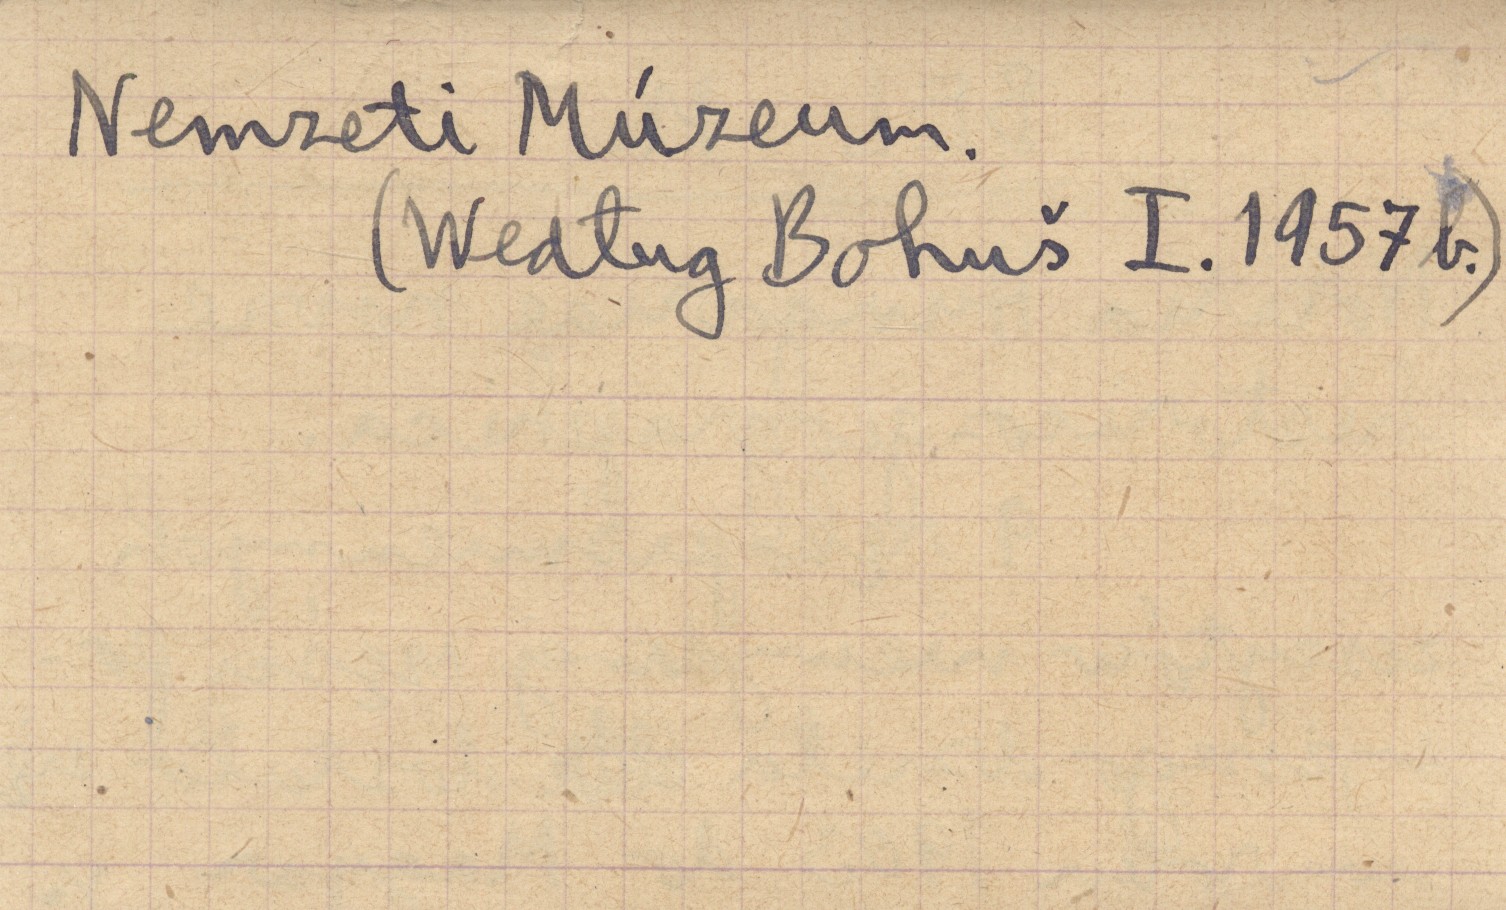 Nemzeti Múzeum.
(Według Bohuš I. 1957